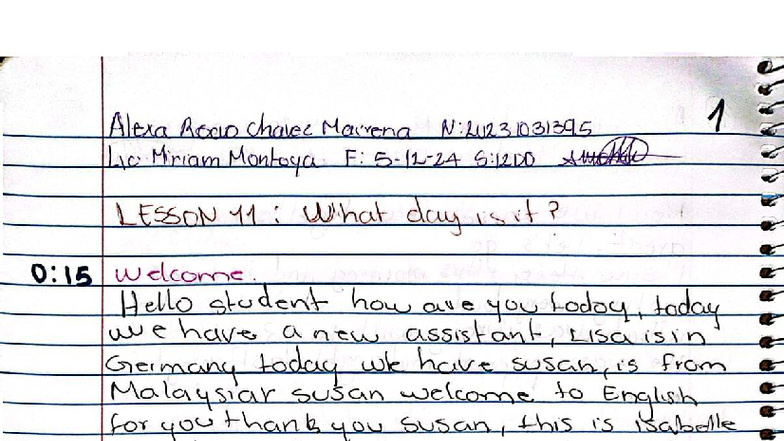 1
Alexa Rocio Chavez Mairena N:20231031395
Lic Miriam Montoya F: 5-12-24 S:1200
LESSON 11: What day is it?
0:15 Welcome.
Hello student how are you today, today
we have a new assistant, Lisa is in
Germany today we have susan, is from
Malaysiar susan welcome to English
for you thank you susan, this is isabelle